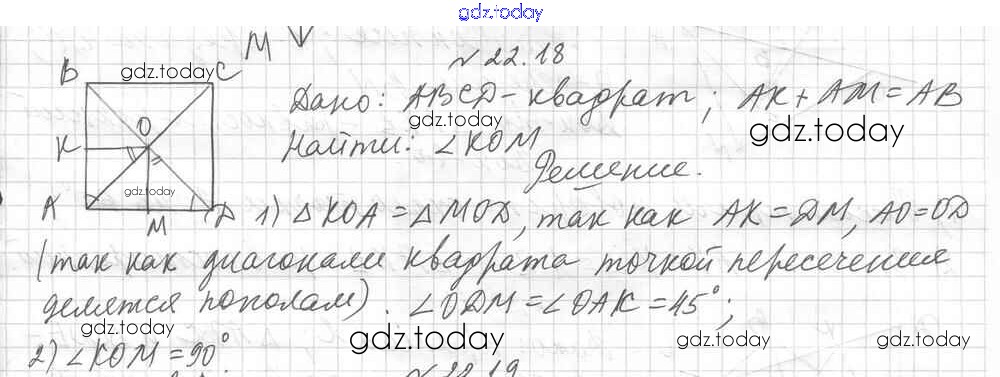 gdz.today
M
№ 22.18
B gdz.today C
Дано: ABCD - квадрат; AK + AM = AB
gdz.today gdz.today
O
K
Найти: ∠KOM
Решение.
gdz.today
A M D 1) △KOA = △MOD, так как AK = DM, AO = OD
(так как диагонали квадрата точкой пересечения
делятся пополам). ∠ODM = ∠OAK = 45°;
gdz.today gdz.today gdz.today gdz.today
2) ∠KOM = 90°